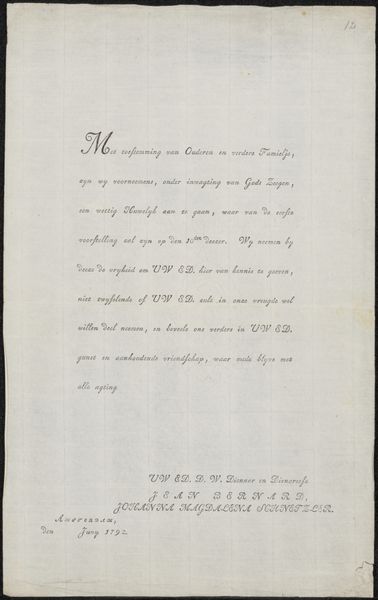 12
Met toestemming van Ouderen en verdere Famielje,
zyn wy voorneemens, onder inwagting van Gods Zeegen,
een wettig Huwelyk aan te gaan, waar van de eerste
voorstelling zal zyn op den 10den deezer. Wy neemen by
deeze de vryheid om UW ED. hier van kennis te geeven,
niet twyfelende of UW ED. zult in onze vreugde wel
willen deel neemen, en beveele ons verders in UW ED.
gunst en aanhoudende vriendschap, waar mede blyve met
alle agting
UW ED. D. W. Dienaar en Dienaresse
JEAN BERNARD,
JOHANNA MAGDALENA SCHNETZLER.
Amsterdam,
den Juny 1792.